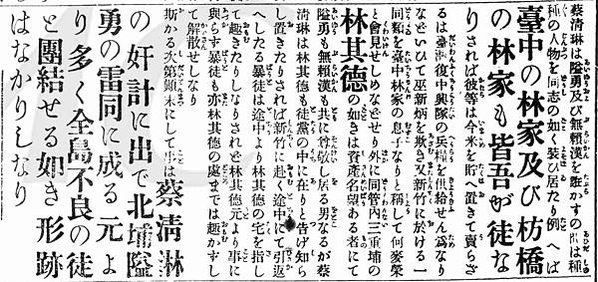 蔡淸琳は隘勇及び無頼漢を誑かすの日は種
種の人物を同志の如く裝ひ居たり例へば
臺中の林家及び枋橋
の林家も皆吾が徒な
りされば彼等は今米を貯へ置きて賣らざ
るは臺灣復中興隊の兵糧を供給せん爲なり
などいひて巫新炳を欺き又新竹に於ける一
同類を臺中林家の息子なりと稱して何麥榮
と會見せしめなどせり外に同管內三重埔の
林其德の如きは資產名望ある者にて
隘勇も無頼漢も共に尊敬し居る男なるが蔡
淸琳は林其德も徒黨の中に在りと告げ知ら
し置きたりされば新竹に赴く途中にて引返
へしたる暴徒は途中より林其德の宅を指し
て趣きたりしなりされど林其德元より事に
與らず暴徒も亦林其德の處までは趣かずし
て解散せしなり
斯かる次第顚末にして事は蔡淸琳
の奸計に出で北埔隘
勇の雷同に成る元よ
り多く全島不良の徒
と團結せる如き形跡
はなかりしなり